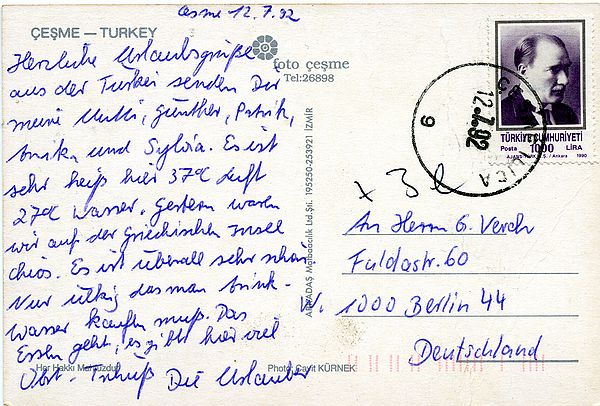 Cesme 12.7.92
ÇEŞME — TURKEY
Herzliche Urlaubsgrüße
aus der Türkei senden Dir
meine Mutti, Günther, Patrik,
und Sylvia. Es ist
sehr heiß hier 37° Luft
27° Wasser. Gestern waren
wir auf der Griechischen Insel
Chios. Es ist überall sehr schön
Nur ulkig das man Trink-
wasser kaufen muß. Das
Essen geht, es gibt hier viel
Obst. Tschüß Die Urlauber
foto çeşme
Tel:26898
Matbaacılık Ltd.Şti. 195250-253921 İZMİR
Her Hakkı Mahfuzdur
Photo: Cavit KÜRNEK
12.7.92
9
TÜRKİYE CUMHURİYETİ
Posta 1000 LİRA
Ankara 1990
An Herrn G. Verch
Fuldastr. 60
1000 Berlin 44
Deutschland